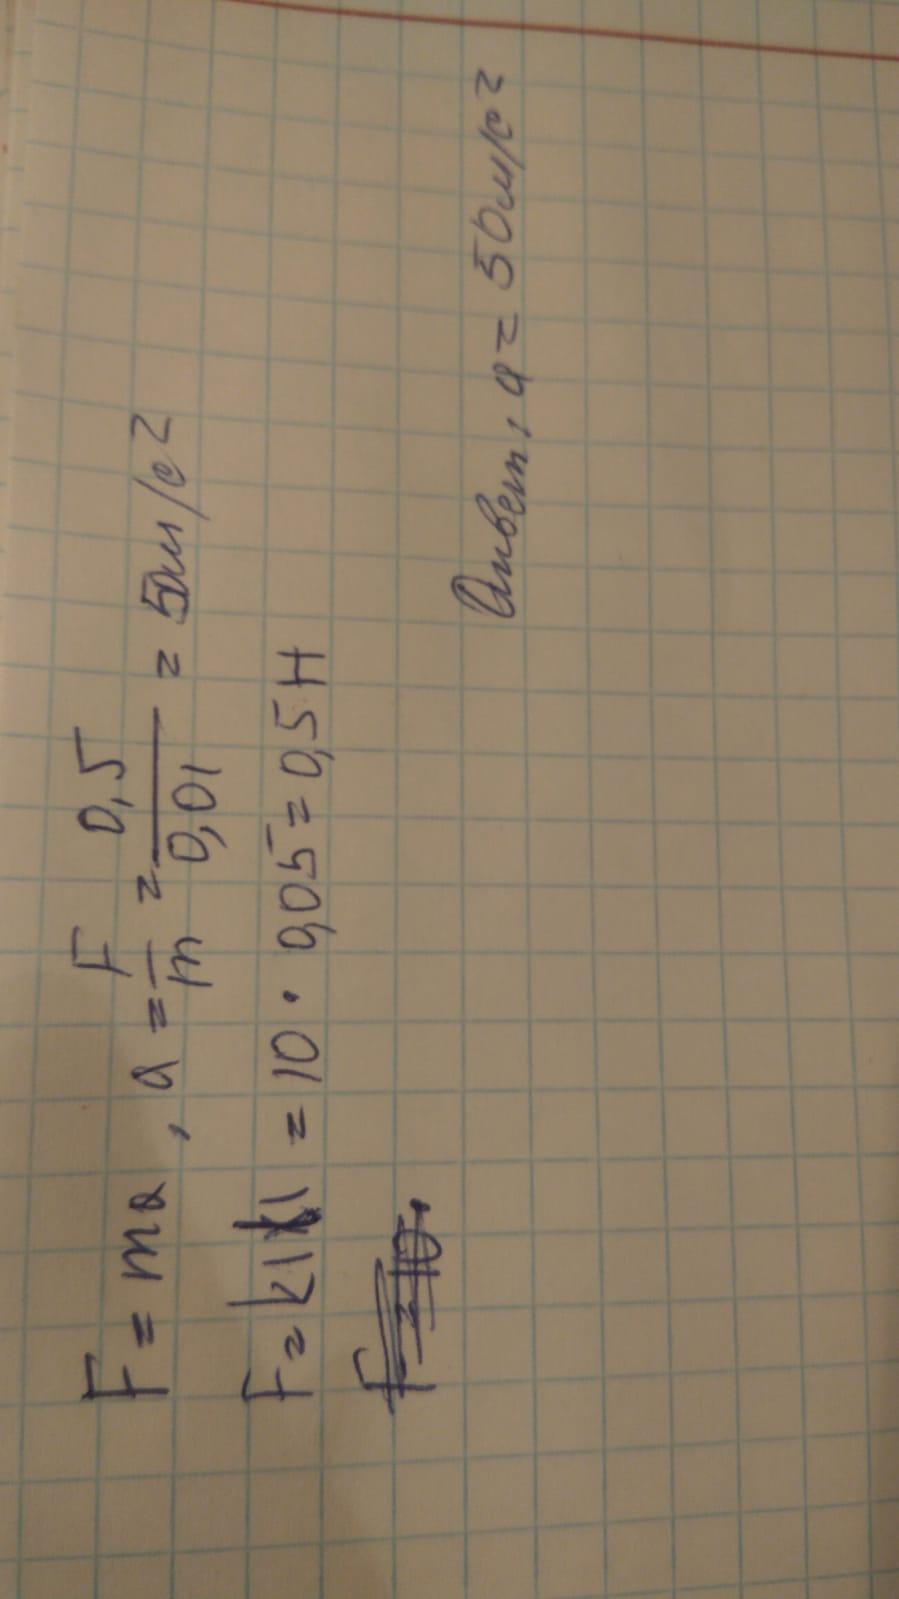 F = ma, a = F/m = 0,5/0,01 = 50м/с²
F = k|x| = 10 · 0,05 = 0,5 Н
Ответ, a = 50м/с²